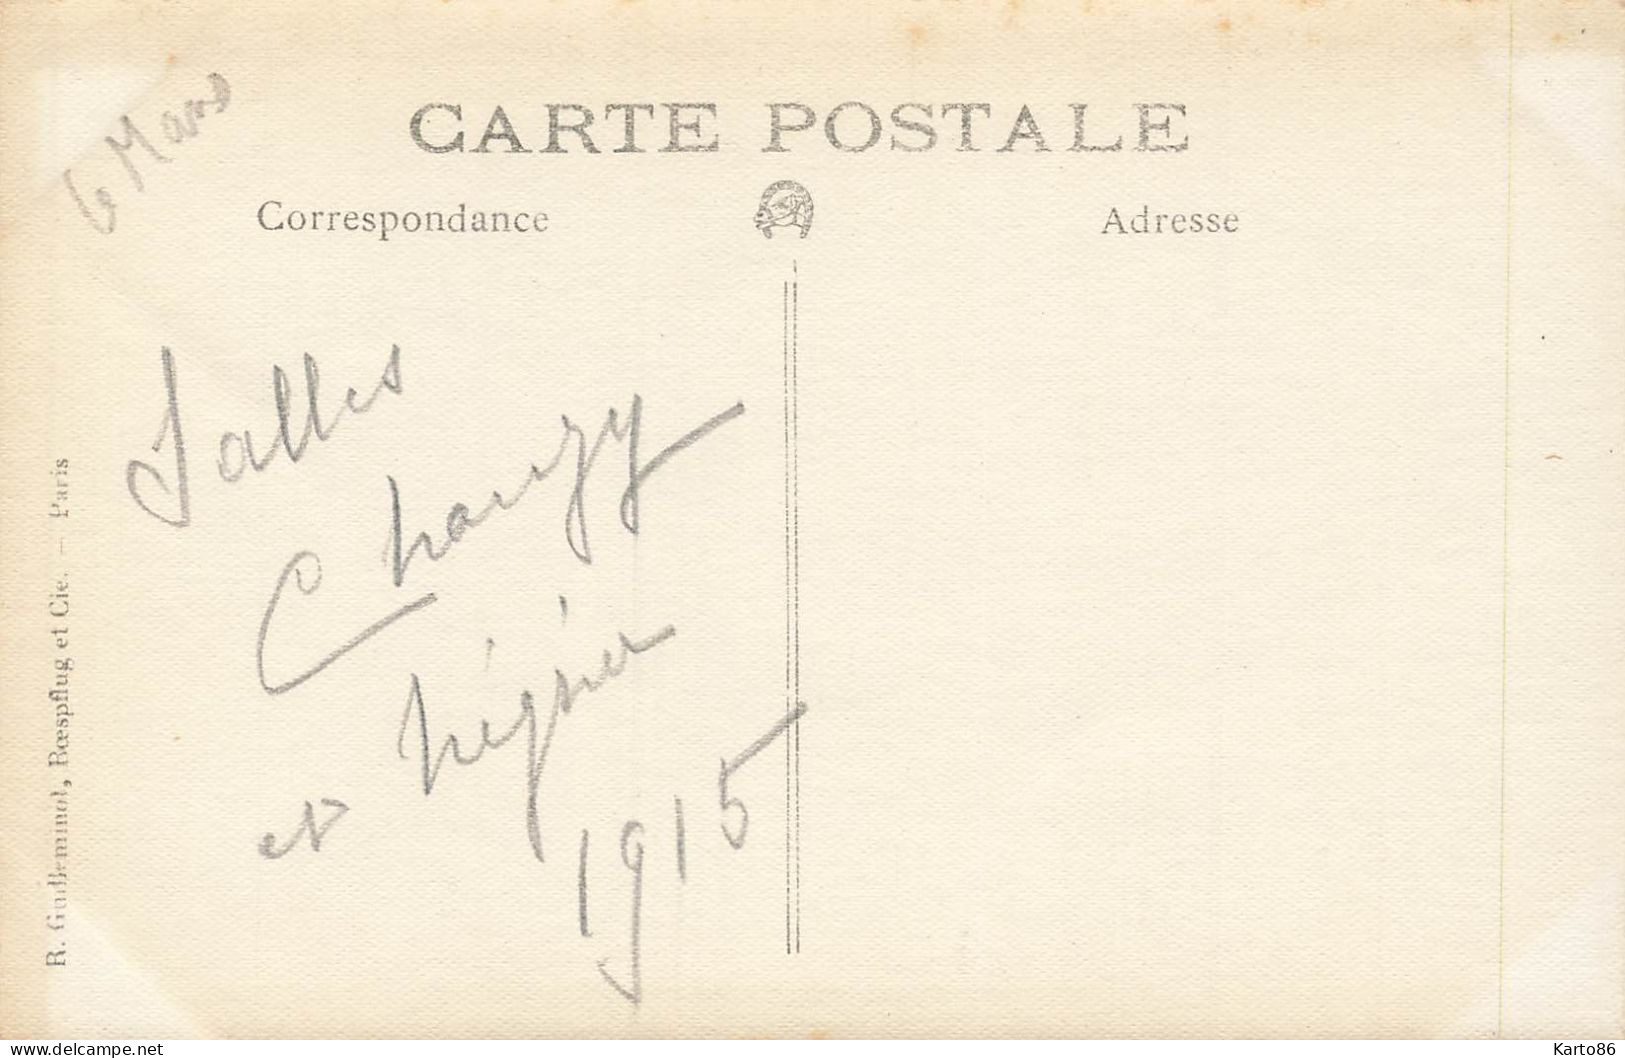 Le Mans
CARTE POSTALE
Correspondance
Adresse
Salles
Chanzy
et Négrier
1915
R. Guilleminot, Rœspflug et Cie. — Paris
delcampe.net
Karto86